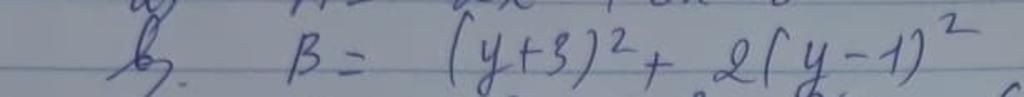 b). B = (y+3)² + 2(y-1)²